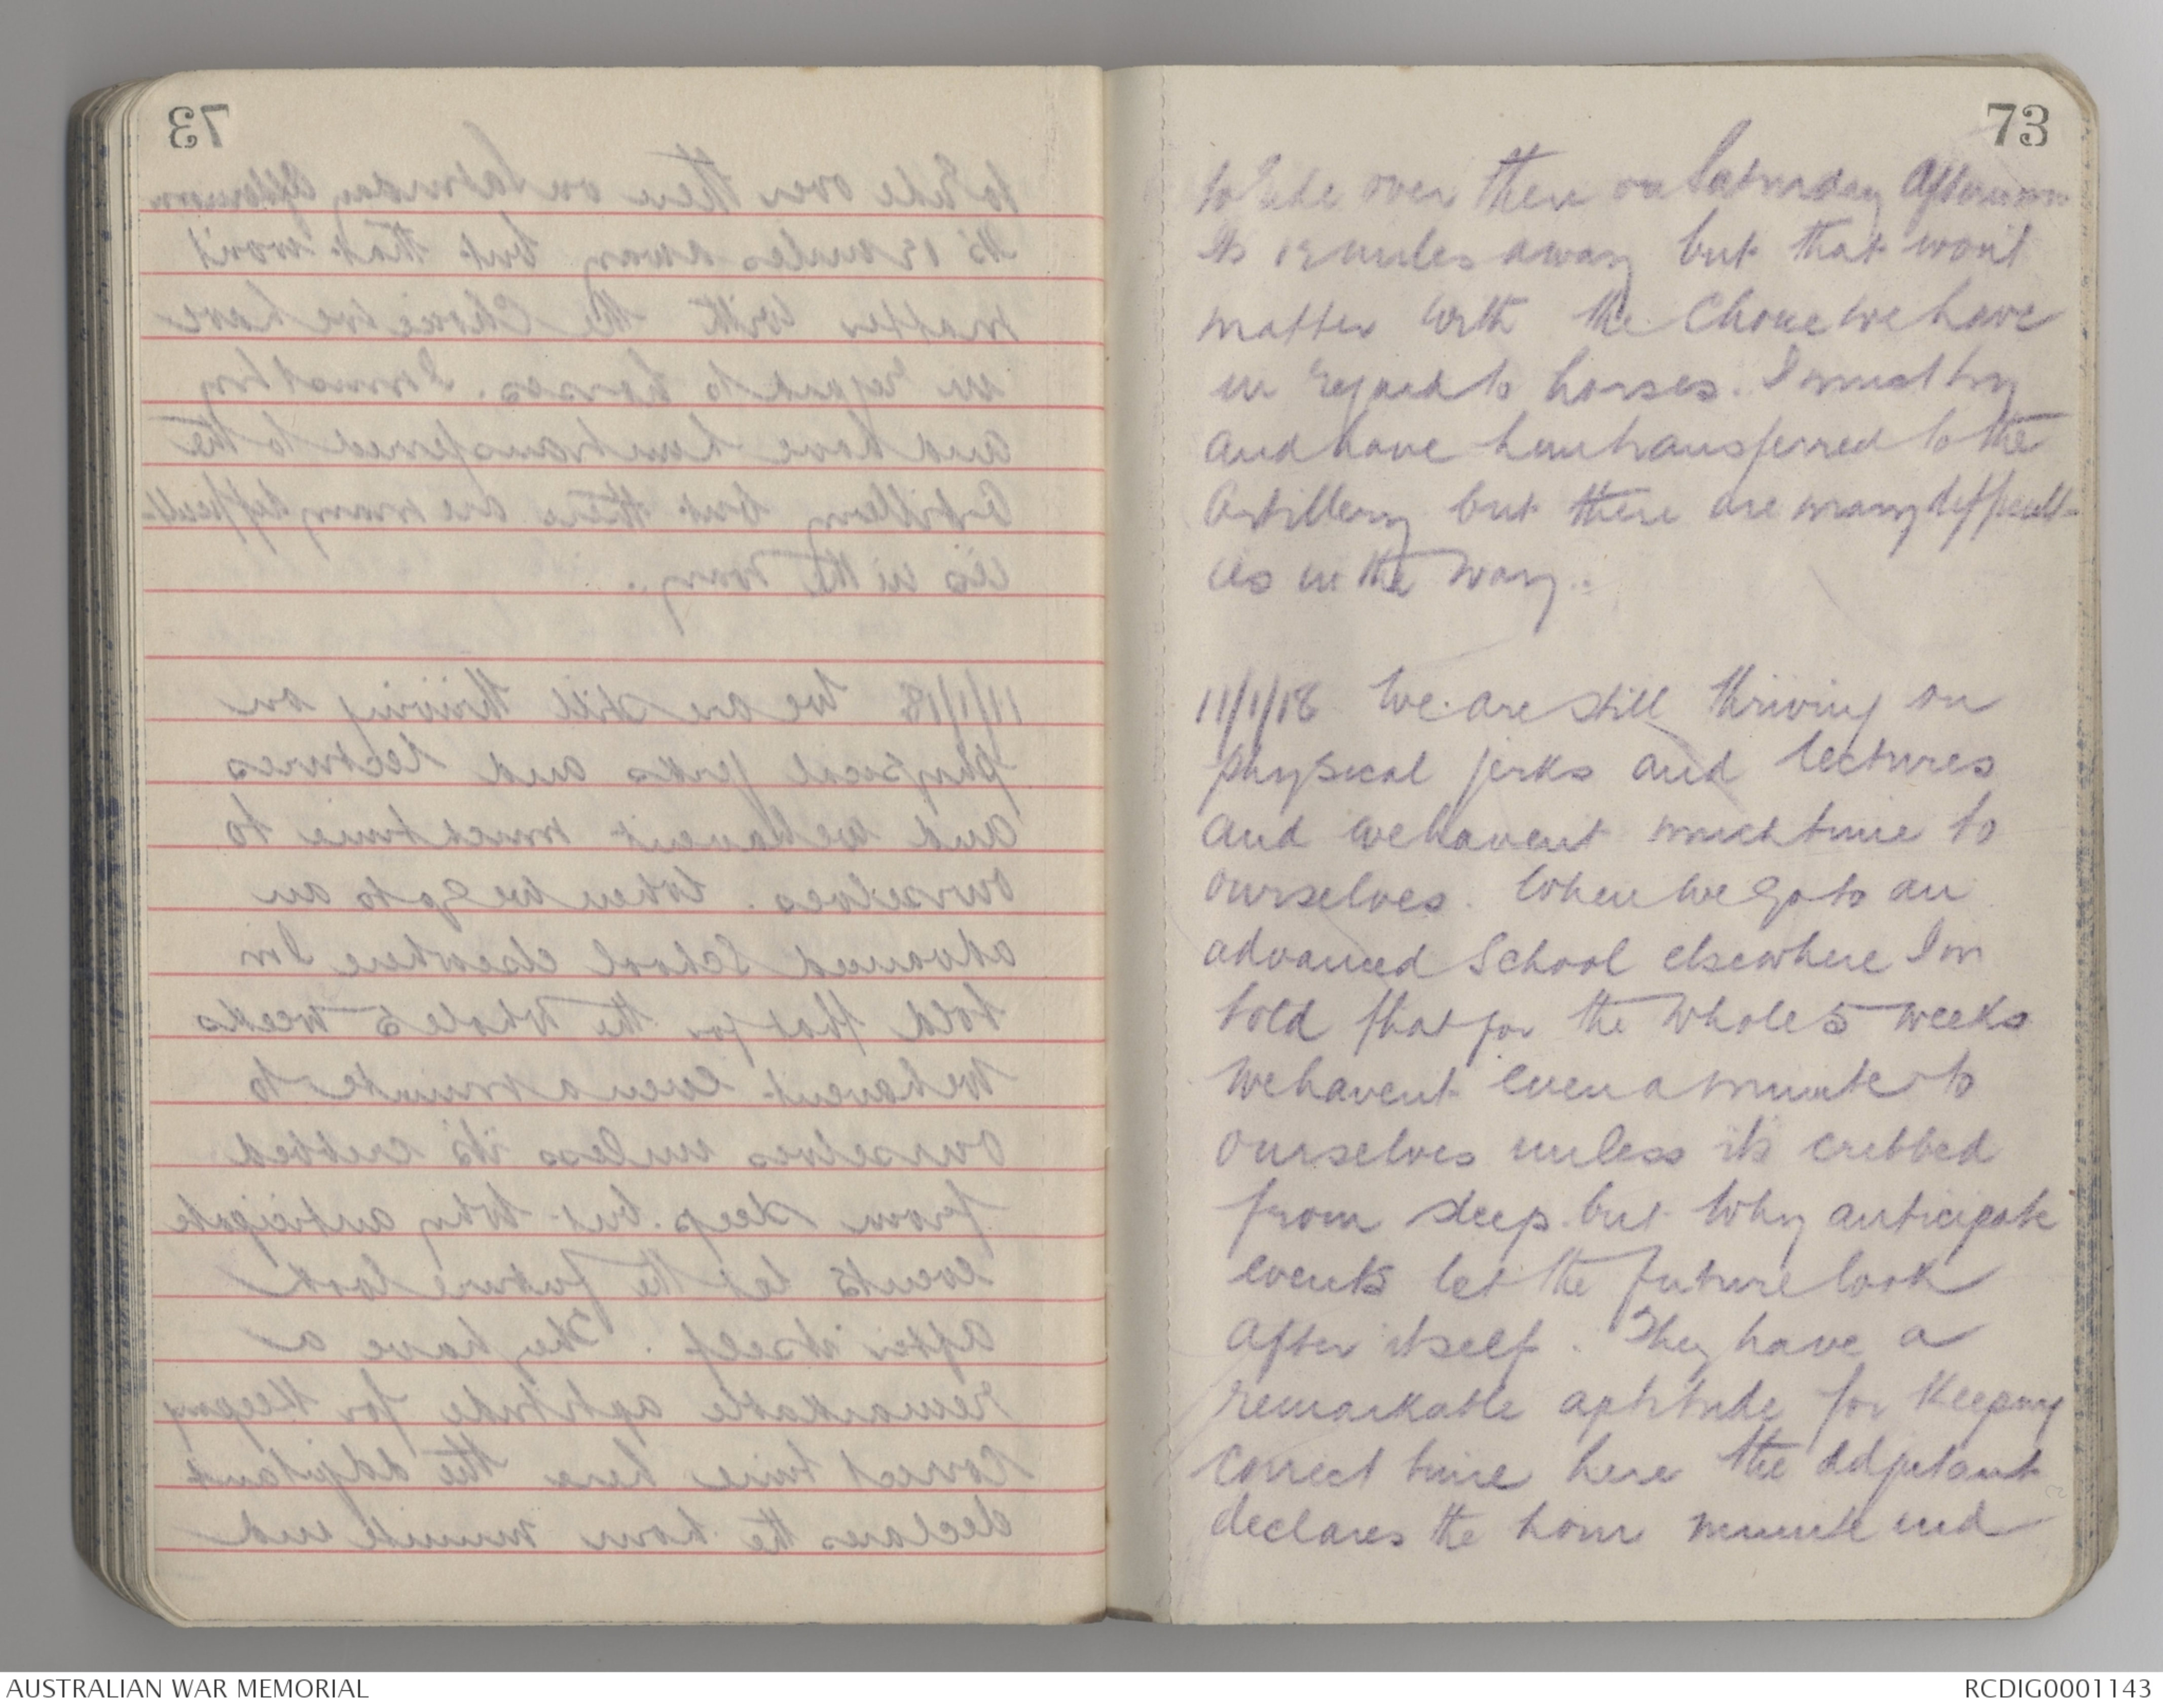 73
to ride over there on Saturday Afternoon
Its 12 miles away but that won't
matter with the Choice we have
in regard to horses. I must try
and have him transferred to the
Artillery but there are many difficult-
ies in the way.
11/1/18 We are still thriving on
physical jerks and lectures
and we havent much time to
ourselves. When we go to an
advanced School elsewhere Im
told that for the whole 5 weeks
we havent even a minute to
ourselves unless its cribbed
from sleep but why anticipate
events let the future look
after itself. They have a
remarkable aptitude for keeping
correct time here the adjutant
declares the hour minute and
AUSTRALIAN WAR MEMORIAL
RCDIG0001143